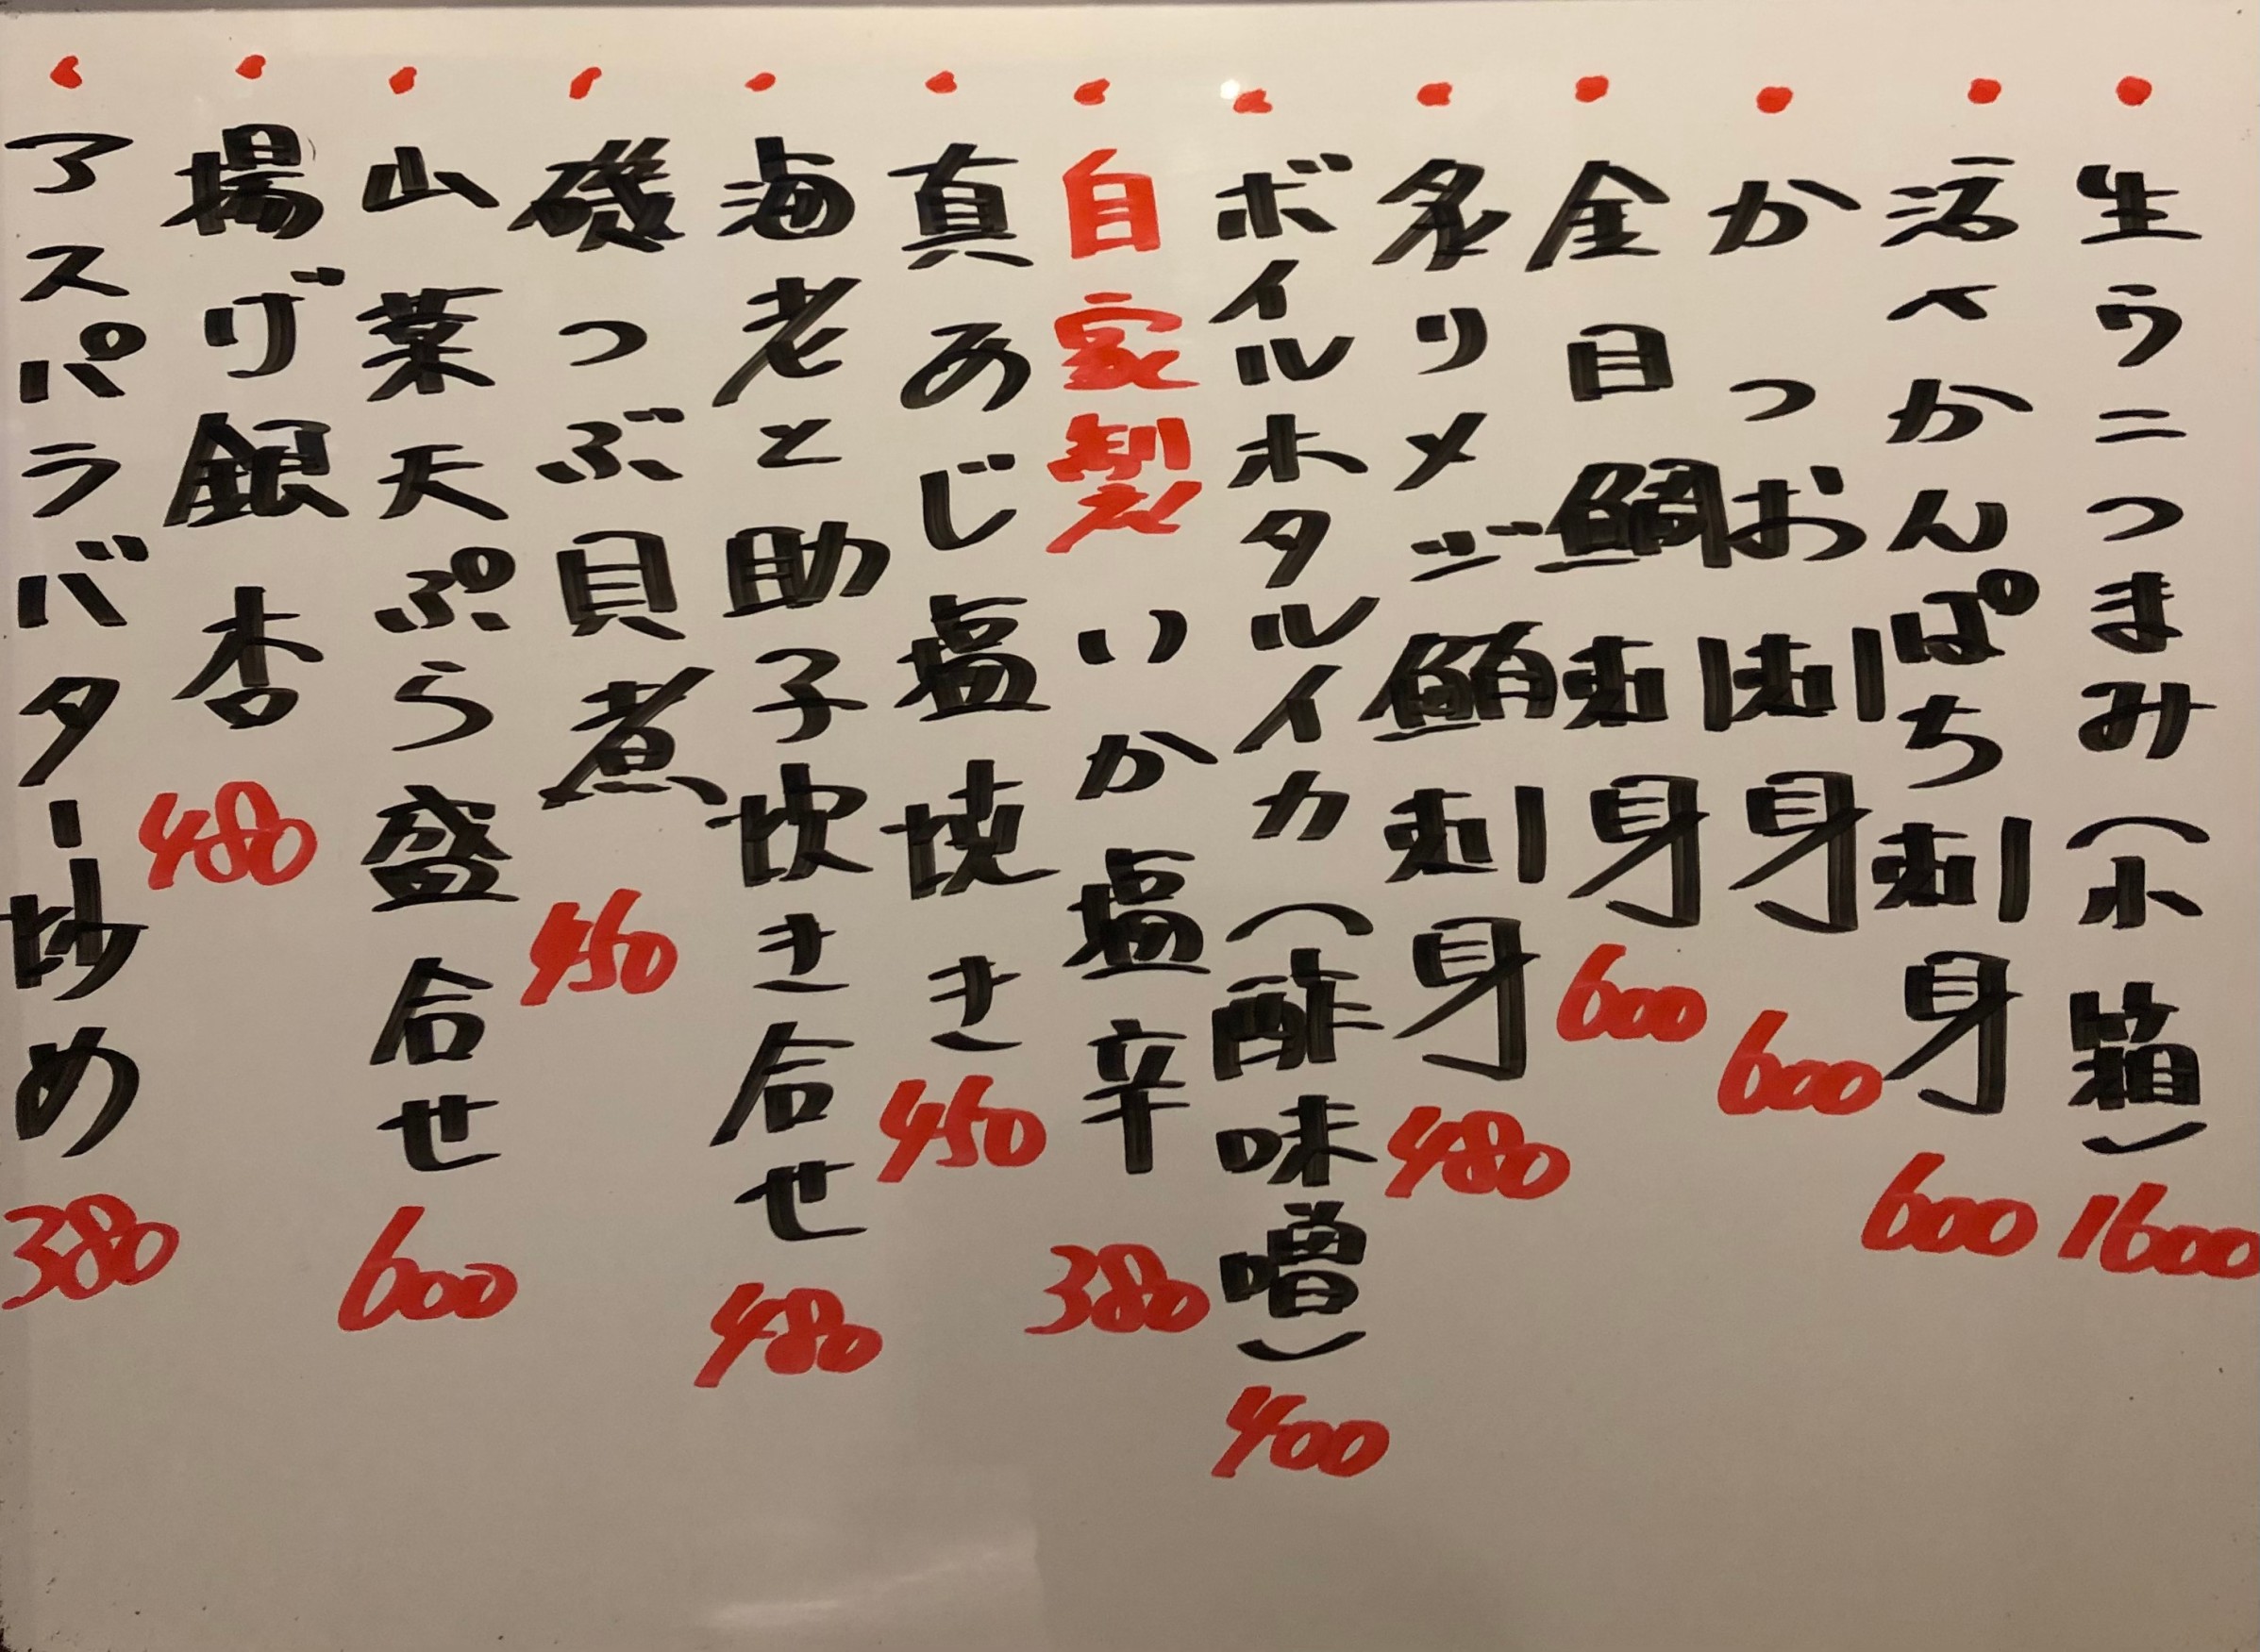 ・生ウニつまみ(小箱) 1600
・活〆かんぱち刺身 600
・かつお刺身 600
・金目鯛刺身 600
・炙りメジ鮪刺身 480
・ボイルホタルイカ(酢味噌) 400
・自家製 いか塩辛 380
・真あじ塩焼き 450
・海老と助子炊き合せ 480
・磯つぶ貝煮 450
・山菜天ぷら盛合せ 600
・揚げ銀杏 480
・アスパラバター炒め 380